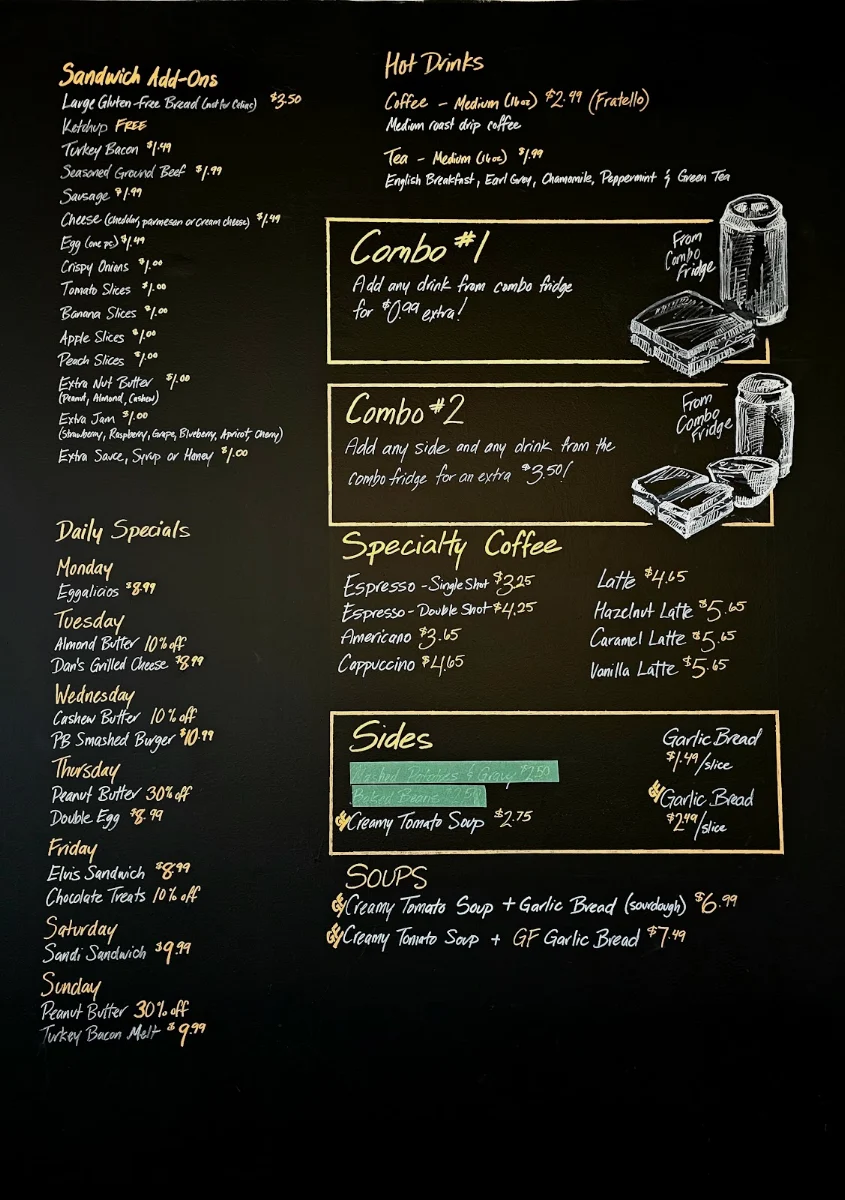 Sandwich Add-Ons
Large Gluten-Free Bread (not for Celiac) $3.50
Ketchup FREE
Turkey Bacon $1.49
Seasoned Ground Beef $1.99
Sausage $1.99
Cheese (cheddar, parmesan or cream cheese) $1.49
Egg (one pc) $1.49
Crispy Onions $1.00
Tomato Slices $1.00
Banana Slices $1.00
Apple Slices $1.00
Peach Slices $1.00
Extra Nut Butter $1.00
(Peanut, Almond, Cashew)
Extra Jam $1.00
(Strawberry, Raspberry, Grape, Blueberry, Apricot, Cherry)
Extra Sauce, Syrup or Honey $1.00
Daily Specials
Monday
Eggalicios $8.99
Tuesday
Almond Butter 10% off
Dan's Grilled Cheese $8.99
Wednesday
Cashew Butter 10% off
PB Smashed Burger $10.99
Thursday
Peanut Butter 30% off
Double Egg $8.99
Friday
Elvis Sandwich $8.99
Chocolate Treats 10% off
Saturday
Sandi Sandwich $9.99
Sunday
Peanut Butter 30% off
Turkey Bacon Melt $9.99
Hot Drinks
Coffee - Medium (16oz) $2.99 (Fratello)
Medium roast drip coffee
Tea - Medium (16oz) $1.99
English Breakfast, Earl Grey, Chamomile, Peppermint & Green Tea
Combo #1
Add any drink from combo fridge
for $0.99 extra!
From
Combo
Fridge
Combo #2
Add any side and any drink from the
combo fridge for an extra $3.50!
From
Combo
Fridge
Specialty Coffee
Espresso - Single Shot $3.25
Espresso - Double Shot $4.25
Americano $3.65
Cappuccino $4.65
Latte $4.65
Hazelnut Latte $5.65
Caramel Latte $5.65
Vanilla Latte $5.65
Sides
Mashed Potatoes & Gravy $2.50
Baked Beans $2.50
GF Creamy Tomato Soup $2.75
Garlic Bread
$1.49/slice
GF Garlic Bread
$2.49/slice
SOUPS
GF Creamy Tomato Soup + Garlic Bread (sourdough) $6.99
GF Creamy Tomato Soup + GF Garlic Bread $7.49